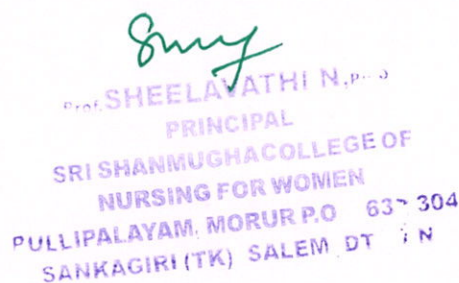 Prof. SHEELAVATHI N,
PRINCIPAL
SRI SHANMUGHA COLLEGE OF
NURSING FOR WOMEN
PULLIPALAYAM, MORUR P.O 304
SANKAGIRI (TK) SALEM DT N